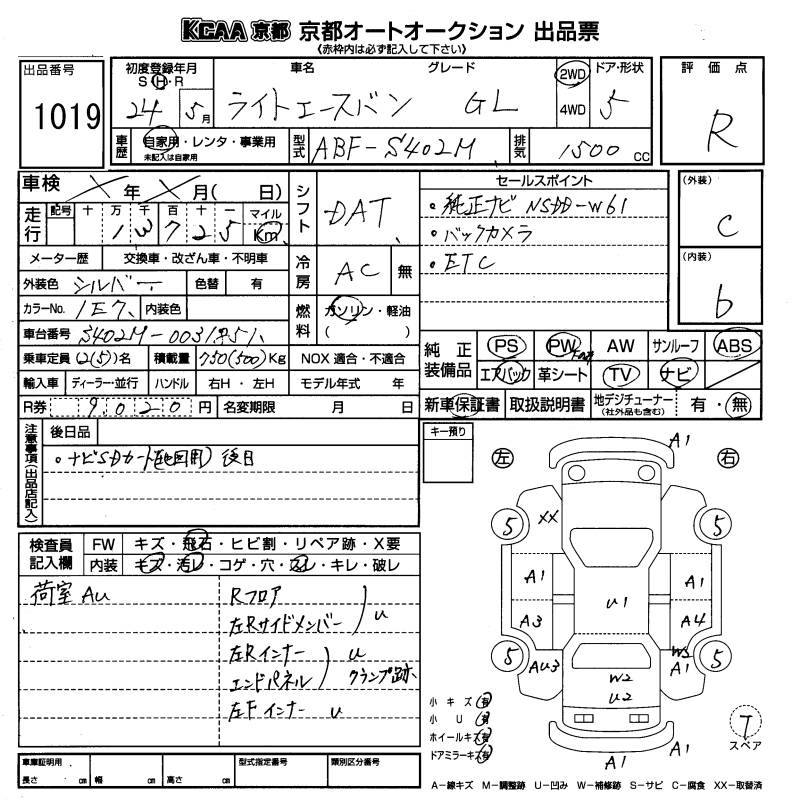 KCAA 京都 京都オートオークション 出品票
《赤枠内は必ず記入して下さい》
出品番号
1019
初度登録年月
S・H・R
24 5月
車名
ライトエースバン
グレード
GL
2WD
4WD
ドア・形状
5
評価点
R
車歴
自家用・レンタ・事業用
未記入は自家用
型式
ABF-S402M
排気
1500 CC
車検 年 月( 日)
走行
記号 十 万 千 百 十 一 マイル
Km
シフト
DAT
セールスポイント
・純正ナビ NSDD-W61
・バックカメラ
・ETC
(外装)
C
(内装)
b
メーター歴 交換車・改ざん車・不明車
外装色 シルバー 色替 有
カラーNo. 1E7 内装色
車台番号 S402M-0031851
乗車定員 (2(5))名 積載量 750(500)Kg
輸入車 ディーラー・並行 ハンドル 右H・左H
モデル年式 年
R券 9020円 名変期限 月 日
冷房
AC 無
燃料
ガソリン・軽油
( )
NOX 適合・不適合
純正装備品
PS PW AW サンルーフ ABS
エアバック 革シート TV ナビ
新車保証書 取扱説明書 地デジチューナー
(社外品も含む)
有・無
注意事項(出品店記入)
後日品
・ナビSDカード(地図用) 後日
キー預り
検査員記入欄
FW キズ・飛石・ヒビ割・リペア跡・X要
内装 キズ・汚レ・コゲ・穴・スレ・キレ・破レ
荷室 AU
Rフロア
左Rサイドメンバー
U
左Rインナー U
エンドパネル クランプ跡
左Fインナー U
左
右
A1
5
XX
5
A1
U1
A1
A3
A4
5
AU3
W2
U2
W3
A1
5
A1
A1
小キズ 有
小U 有
ホイールキズ 有
ドアミラーキズ 有
T
スペア
車庫証明用
長さ cm 幅 cm 高さ cm
型式指定番号
類別区分番号
A-線キズ M-調整跡 U-凹み W-補修跡 S-サビ C-腐食 XX-取替済